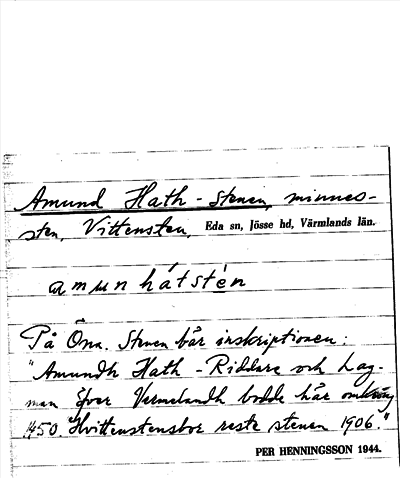 Amund Hath - stenen, minnes-
sten, Vittensten, Eda sn, Jösse hd, Värmlands län.
amun hátstén
På Öna. Stenen bär inskriptionen:
"Amundh Hath - Riddare och Lag-
man öfver Vermelandh bodde här omkring
1450. Hvittenstensbor reste stenen 1906."
PER HENNINGSSON 1944.